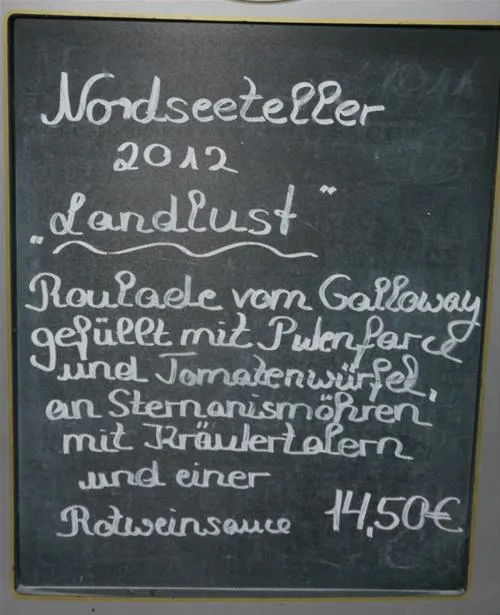 Nordseeteller
2012
„Landlust"
Roulade vom Galloway
gefüllt mit Putenfarce
und Tomatenwürfel,
an Sternanismöhren
mit Kräutertalern
und einer
Rotweinsauce 14,50€